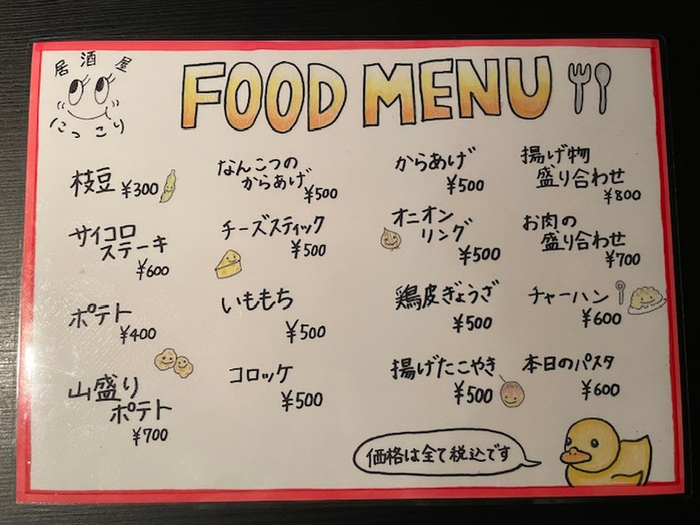 居酒屋
にっこり
FOOD MENU
枝豆 ¥300
サイコロ
ステーキ
¥600
ポテト
¥400
山盛り
ポテト
¥700
なんこつの
からあげ
¥500
チーズスティック
¥500
いももち
¥500
コロッケ
¥500
からあげ
¥500
オニオン
リング
¥500
鶏皮ぎょうざ
¥500
揚げたこやき
¥500
揚げ物
盛り合わせ
¥800
お肉の
盛り合わせ
¥700
チャーハン
¥600
本日のパスタ
¥600
価格は全て税込です